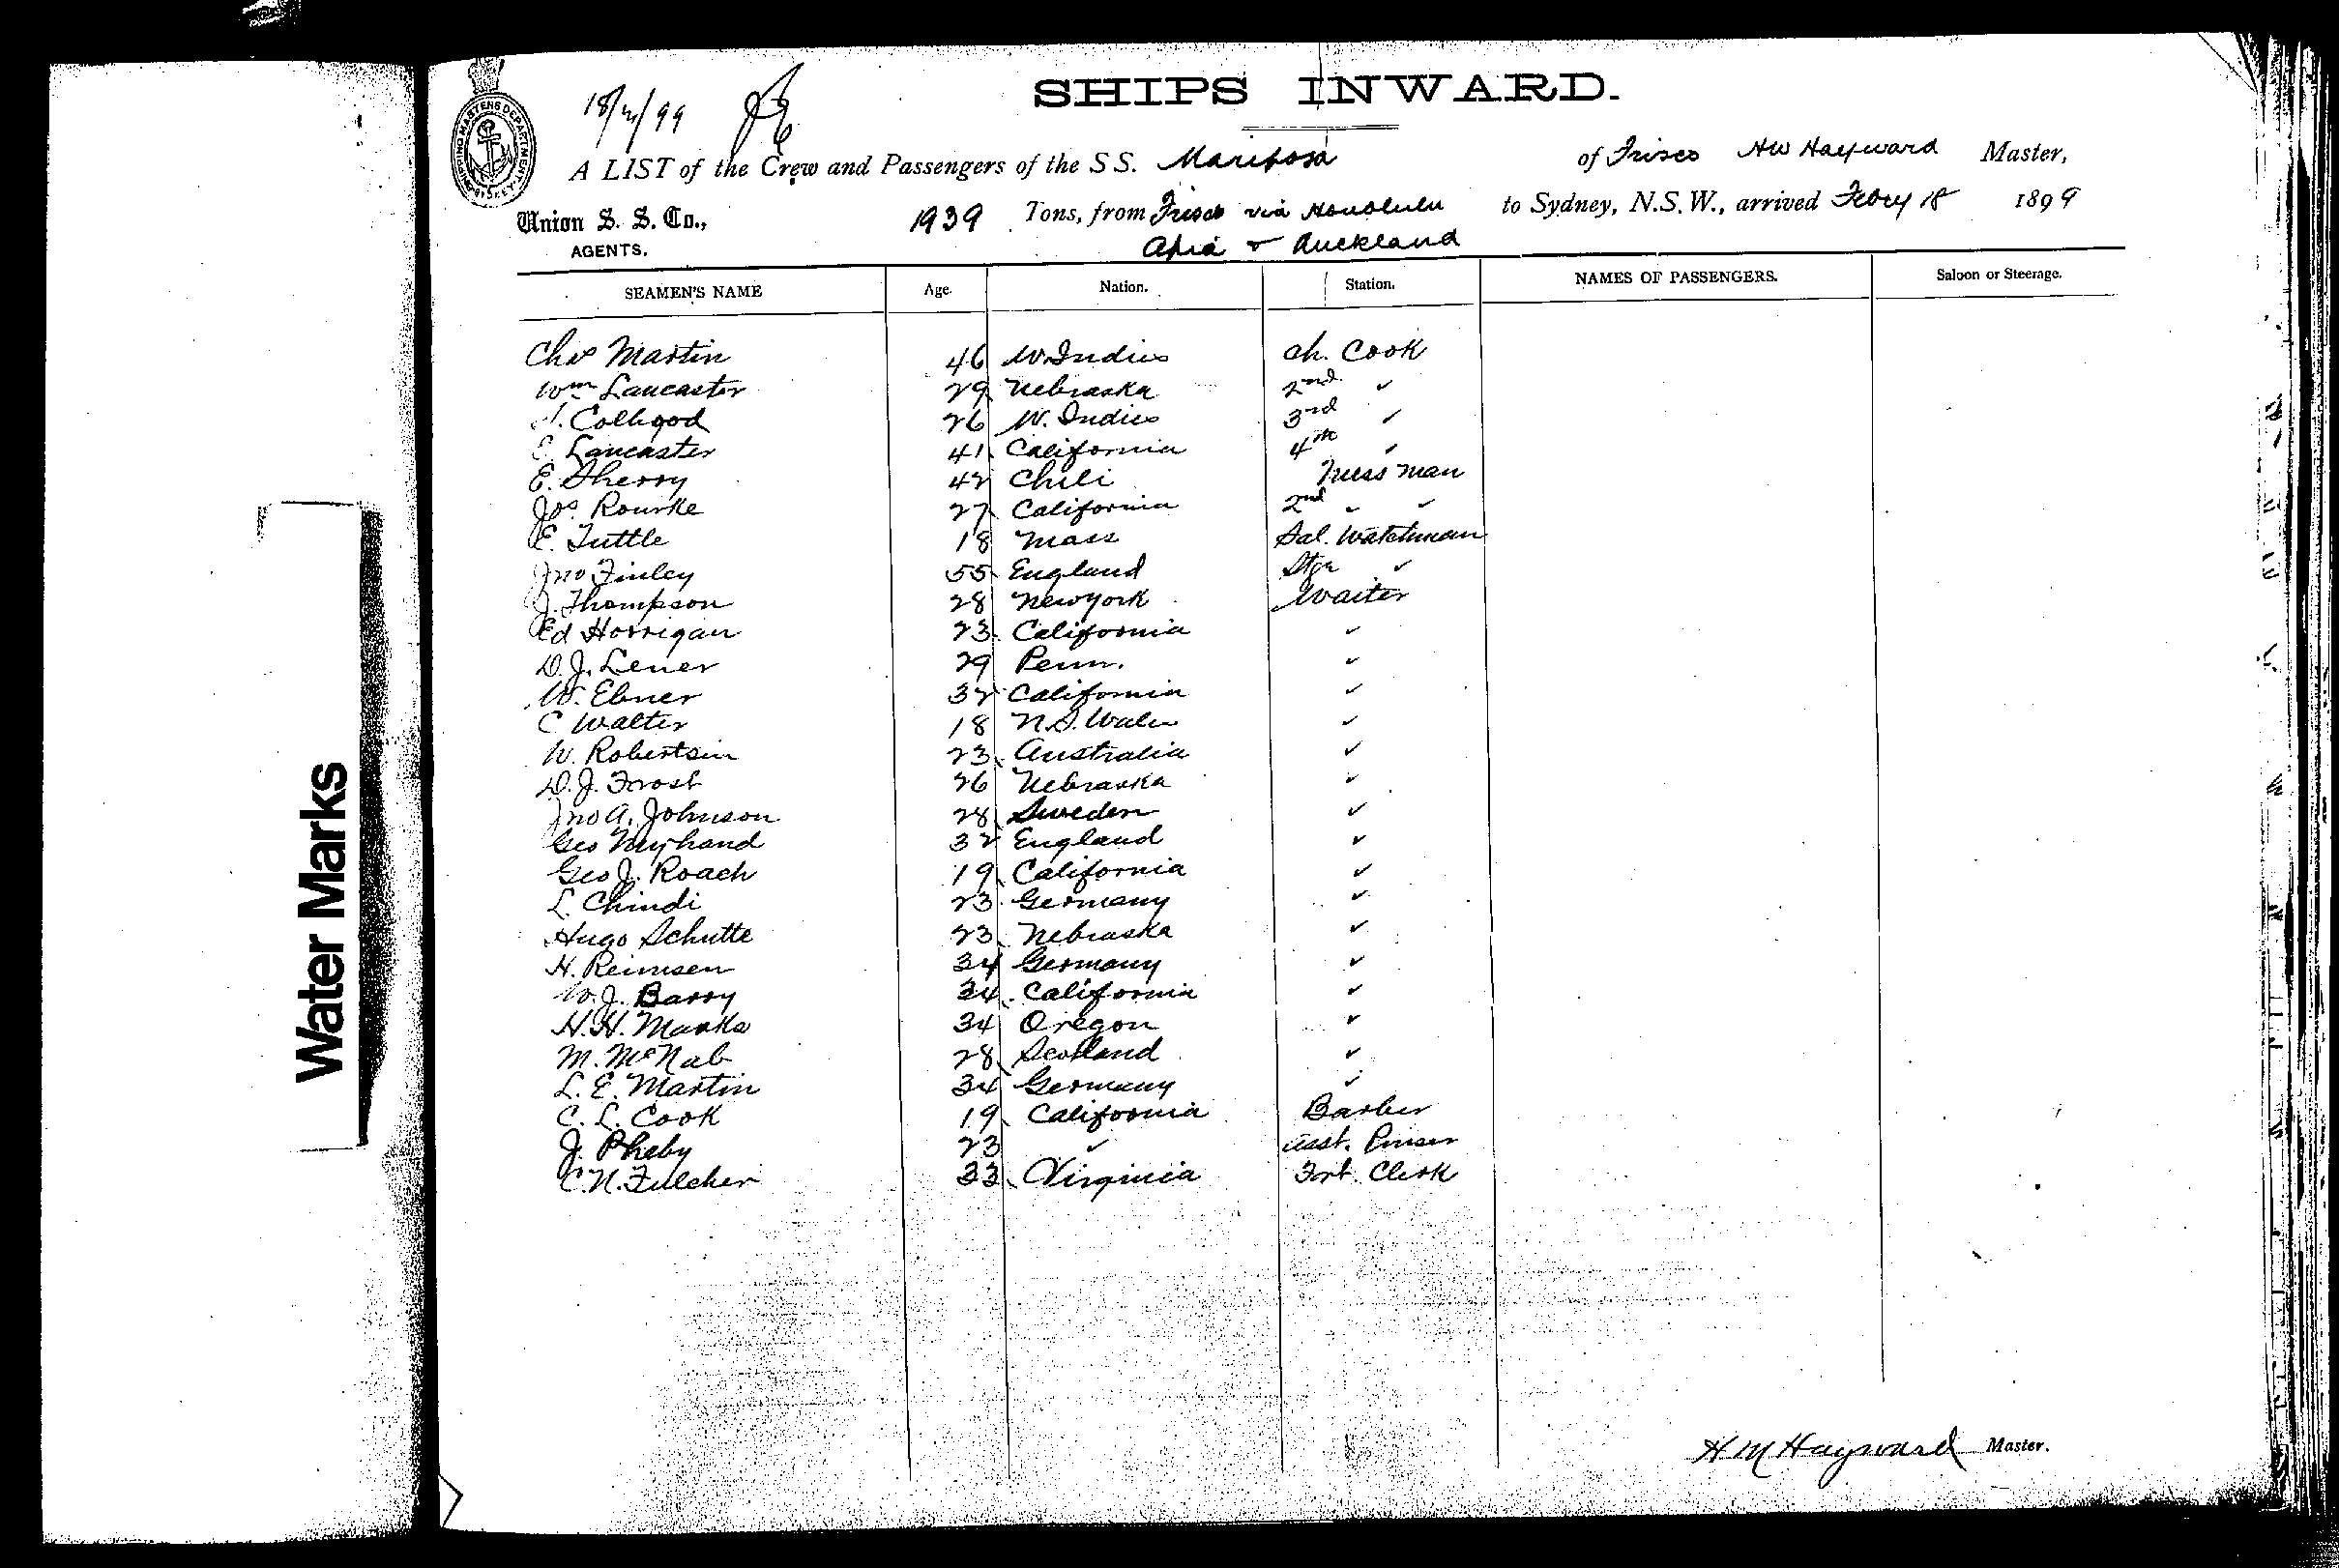 SHIPS INWARD.
18/2/99
A LIST of the Crew and Passengers of the S S. Mariposa of Frisco HW Hayward Master,
Union S. S. Co., 1939 Tons, from Frisco via Honolulu to Sydney, N.S.W., arrived Febry 18 1899
AGENTS. Apia & Auckland
SEAMEN'S NAME Age. Nation. Station. NAMES OF PASSENGERS. Saloon or Steerage.
Chas Martin 46 W. Indies Ch. Cook
Wm Lancaster 29 Nebraska 2nd ✓
J. Colhgod 26 W. Indies 3rd ✓
E. Lancaster 41 California 4th ✓
E. Sherry 42 Chili Mess man
Jos. Rourke 27 California 2nd ✓ ✓
E. Tuttle 18 Mass Sal. Watchman
Jno Finley 55 England Stge ✓
J. Thompson 28 New York Waiter
Ed Horrigan 23 California ✓
D. J. Lener 29 Penn. ✓
W. Ebner 32 California ✓
C Walter 18 N.S. Wales ✓
W. Robertson 23 Australia ✓
D. J. Frost 26 Nebraska ✓
Jno A. Johnson 28 Sweden ✓
Geo 32 England ✓
Geo J. Roach 19 California ✓
L. Chindi 23 Germany ✓
Hugo Schutte 23 Nebraska ✓
H. Reimsen 34 Germany ✓
W. J. Barry 34 California ✓
H. H. Marks 34 Oregon ✓
M. McNab 28 Scotland ✓
L. E. Martin 34 Germany ✓
C. L. Cook 19 California Barber
J. Pheby 23 ✓ Asst. Purser
C. N. Fulcher 33 Virginia Frt. Clerk
H M Hayward Master.
Water Marks